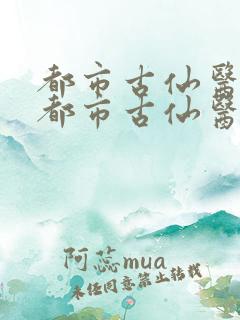 都市古仙醫
都市古仙醫
阿蕊mua
未经同意禁止转载